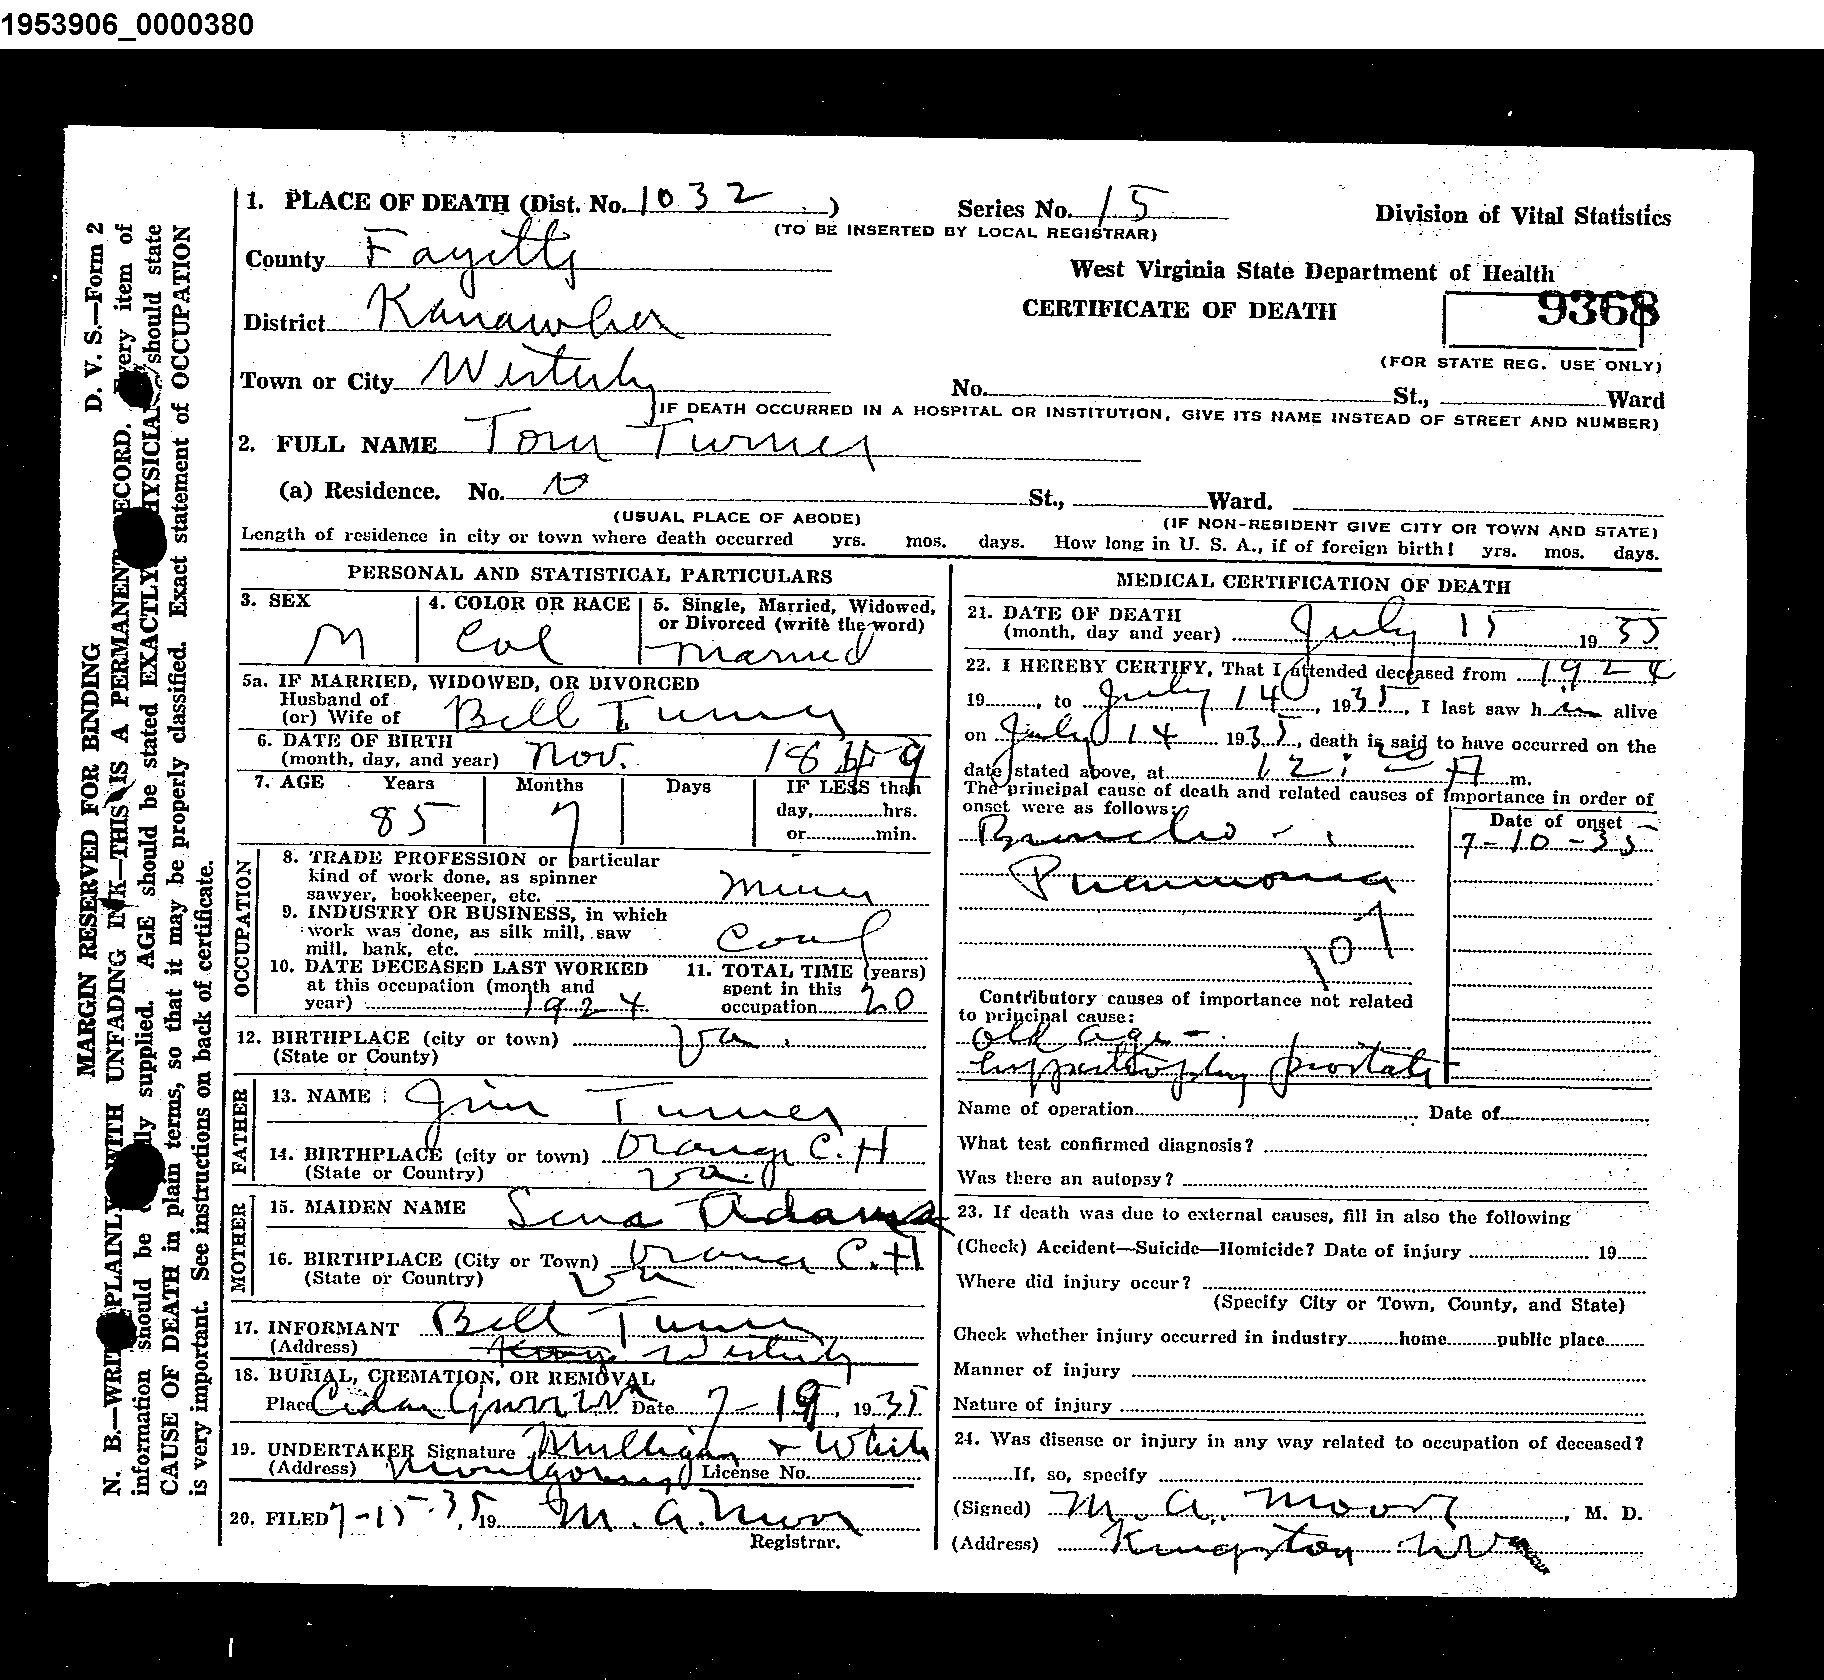 1953906_0000380
1. PLACE OF DEATH (Dist. No. 1032 )
Series No. 15
(TO BE INSERTED BY LOCAL REGISTRAR)
Division of Vital Statistics
County Fayette
West Virginia State Department of Health
District Kanawha
CERTIFICATE OF DEATH
9368
(FOR STATE REG. USE ONLY)
Town or City Westerly
No. St., Ward
(IF DEATH OCCURRED IN A HOSPITAL OR INSTITUTION, GIVE ITS NAME INSTEAD OF STREET AND NUMBER)
2. FULL NAME Tom Turner
(a) Residence. No. St., Ward.
(USUAL PLACE OF ABODE)
(IF NON-RESIDENT GIVE CITY OR TOWN AND STATE)
Length of residence in city or town where death occurred yrs. mos. days. How long in U. S. A., if of foreign birth? yrs. mos. days.
PERSONAL AND STATISTICAL PARTICULARS
3. SEX
M
4. COLOR OR RACE
Col
5. Single, Married, Widowed,
or Divorced (write the word)
married
5a. IF MARRIED, WIDOWED, OR DIVORCED
Husband of
(or) Wife of Bell Turner
6. DATE OF BIRTH
(month, day, and year) Nov. 1849
7. AGE Years Months Days IF LESS than
85 7 day, hrs.
or min.
OCCUPATION
8. TRADE PROFESSION or particular
kind of work done, as spinner
sawyer, bookkeeper, etc. miner
9. INDUSTRY OR BUSINESS, in which
work was done, as silk mill, saw
mill, bank, etc. Coal
10. DATE DECEASED LAST WORKED
at this occupation (month and
year) 1924
11. TOTAL TIME (years)
spent in this
occupation 20
12. BIRTHPLACE (city or town) Va.
(State or County)
FATHER
13. NAME Jim Turner
14. BIRTHPLACE (city or town) Orange C. H
(State or Country) Va.
MOTHER
15. MAIDEN NAME Sena Adams
16. BIRTHPLACE (City or Town) Orange C. H
(State or Country) Va
17. INFORMANT Bell Turner
(Address) Westerly
18. BURIAL, CREMATION, OR REMOVAL
Place Cedar Grove W Va Date 7-19, 1935
19. UNDERTAKER Signature Mulligan & White
(Address) Montgomery License No.
20. FILED 7-15-35, 19 M. A. Moore
Registrar.
MEDICAL CERTIFICATION OF DEATH
21. DATE OF DEATH
(month, day and year) July 15 1935
22. I HEREBY CERTIFY, That I attended deceased from 1924
19 , to July 14, 1935, I last saw him alive
on July 14 1935, death is said to have occurred on the
date stated above, at 12:20 A m.
The principal cause of death and related causes of importance in order of
onset were as follows:
Date of onset
Broncho - 7-10-35
Pneumonia
107
Contributory causes of importance not related
to principal cause:
old age -
hypertrophy prostate
Name of operation Date of
What test confirmed diagnosis?
Was there an autopsy?
23. If death was due to external causes, fill in also the following
(Check) Accident—Suicide—Homicide? Date of injury 19
Where did injury occur?
(Specify City or Town, County, and State)
Check whether injury occurred in industry home public place
Manner of injury
Nature of injury
24. Was disease or injury in any way related to occupation of deceased?
If, so, specify
(Signed) M. A. Moore, M. D.
(Address) Kingston W Va
D. V. S.—Form 2
MARGIN RESERVED FOR BINDING
N. B.—WRITE PLAINLY WITH UNFADING INK—THIS IS A PERMANENT RECORD. Every item of
information should be supplied. AGE should be stated EXACTLY PHYSICIANS should state
CAUSE OF DEATH in plain terms, so that it may be properly classified. Exact statement of OCCUPATION
is very important. See instructions on back of certificate.